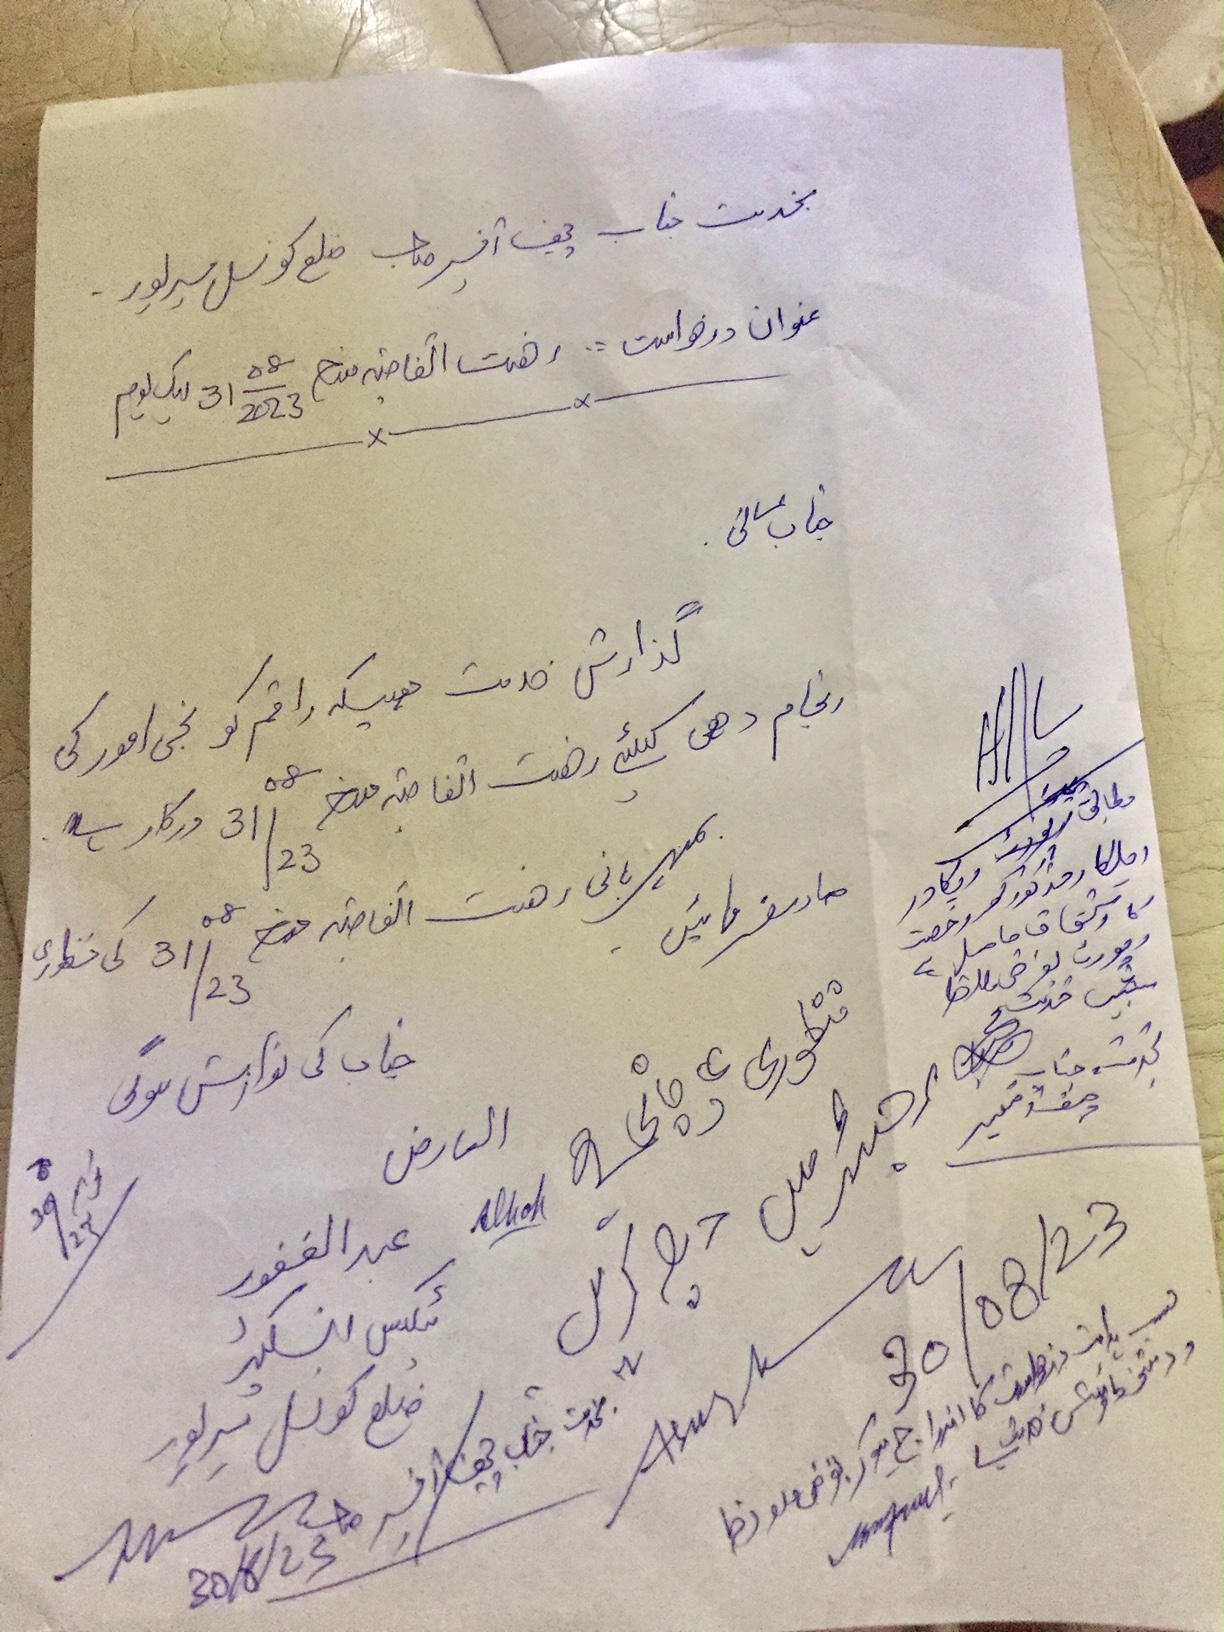 بخدمت جناب چیف آفیسر صاحب ضلع کونسل میرپور ۔
عنوان درخواست :: رخصت اتفاقیہ مورخہ 31 08/2023 یک یوم
جناب عالی .
گذارش خدمت ھیکہ راقم کو نجی امور کی
انجام دھی کیلئے رخصت اتفاقیہ مورخہ 31/08/23 درکار ہے .
مہربانی رخصت اتفاقیہ مورخہ 31/08/23 کی منظوری
صادر فرمائیں ۔
جناب کی نوازش ہوگی
العارض
عبدالغفور
ٹیکس انسپکٹر
ضلع کونسل میرپور
30/8/23
بخدمت جناب چیف آفیسر صاحب
منظوری دی جاتی ہے
رجسٹر میں درج کریں
30/08/23
مطابق ریکارڈ
اہلکار مذکور کو رخصت
کا استحقاق حاصل ہے
رپورٹ بغرض ملاحظہ
پیش خدمت ہے
بخدمت جناب
چیف آفیسر
حسب ہدایت درخواست کا اندراج ہو کر بغرض ملاحظہ
و دستخط پیش خدمت ہے